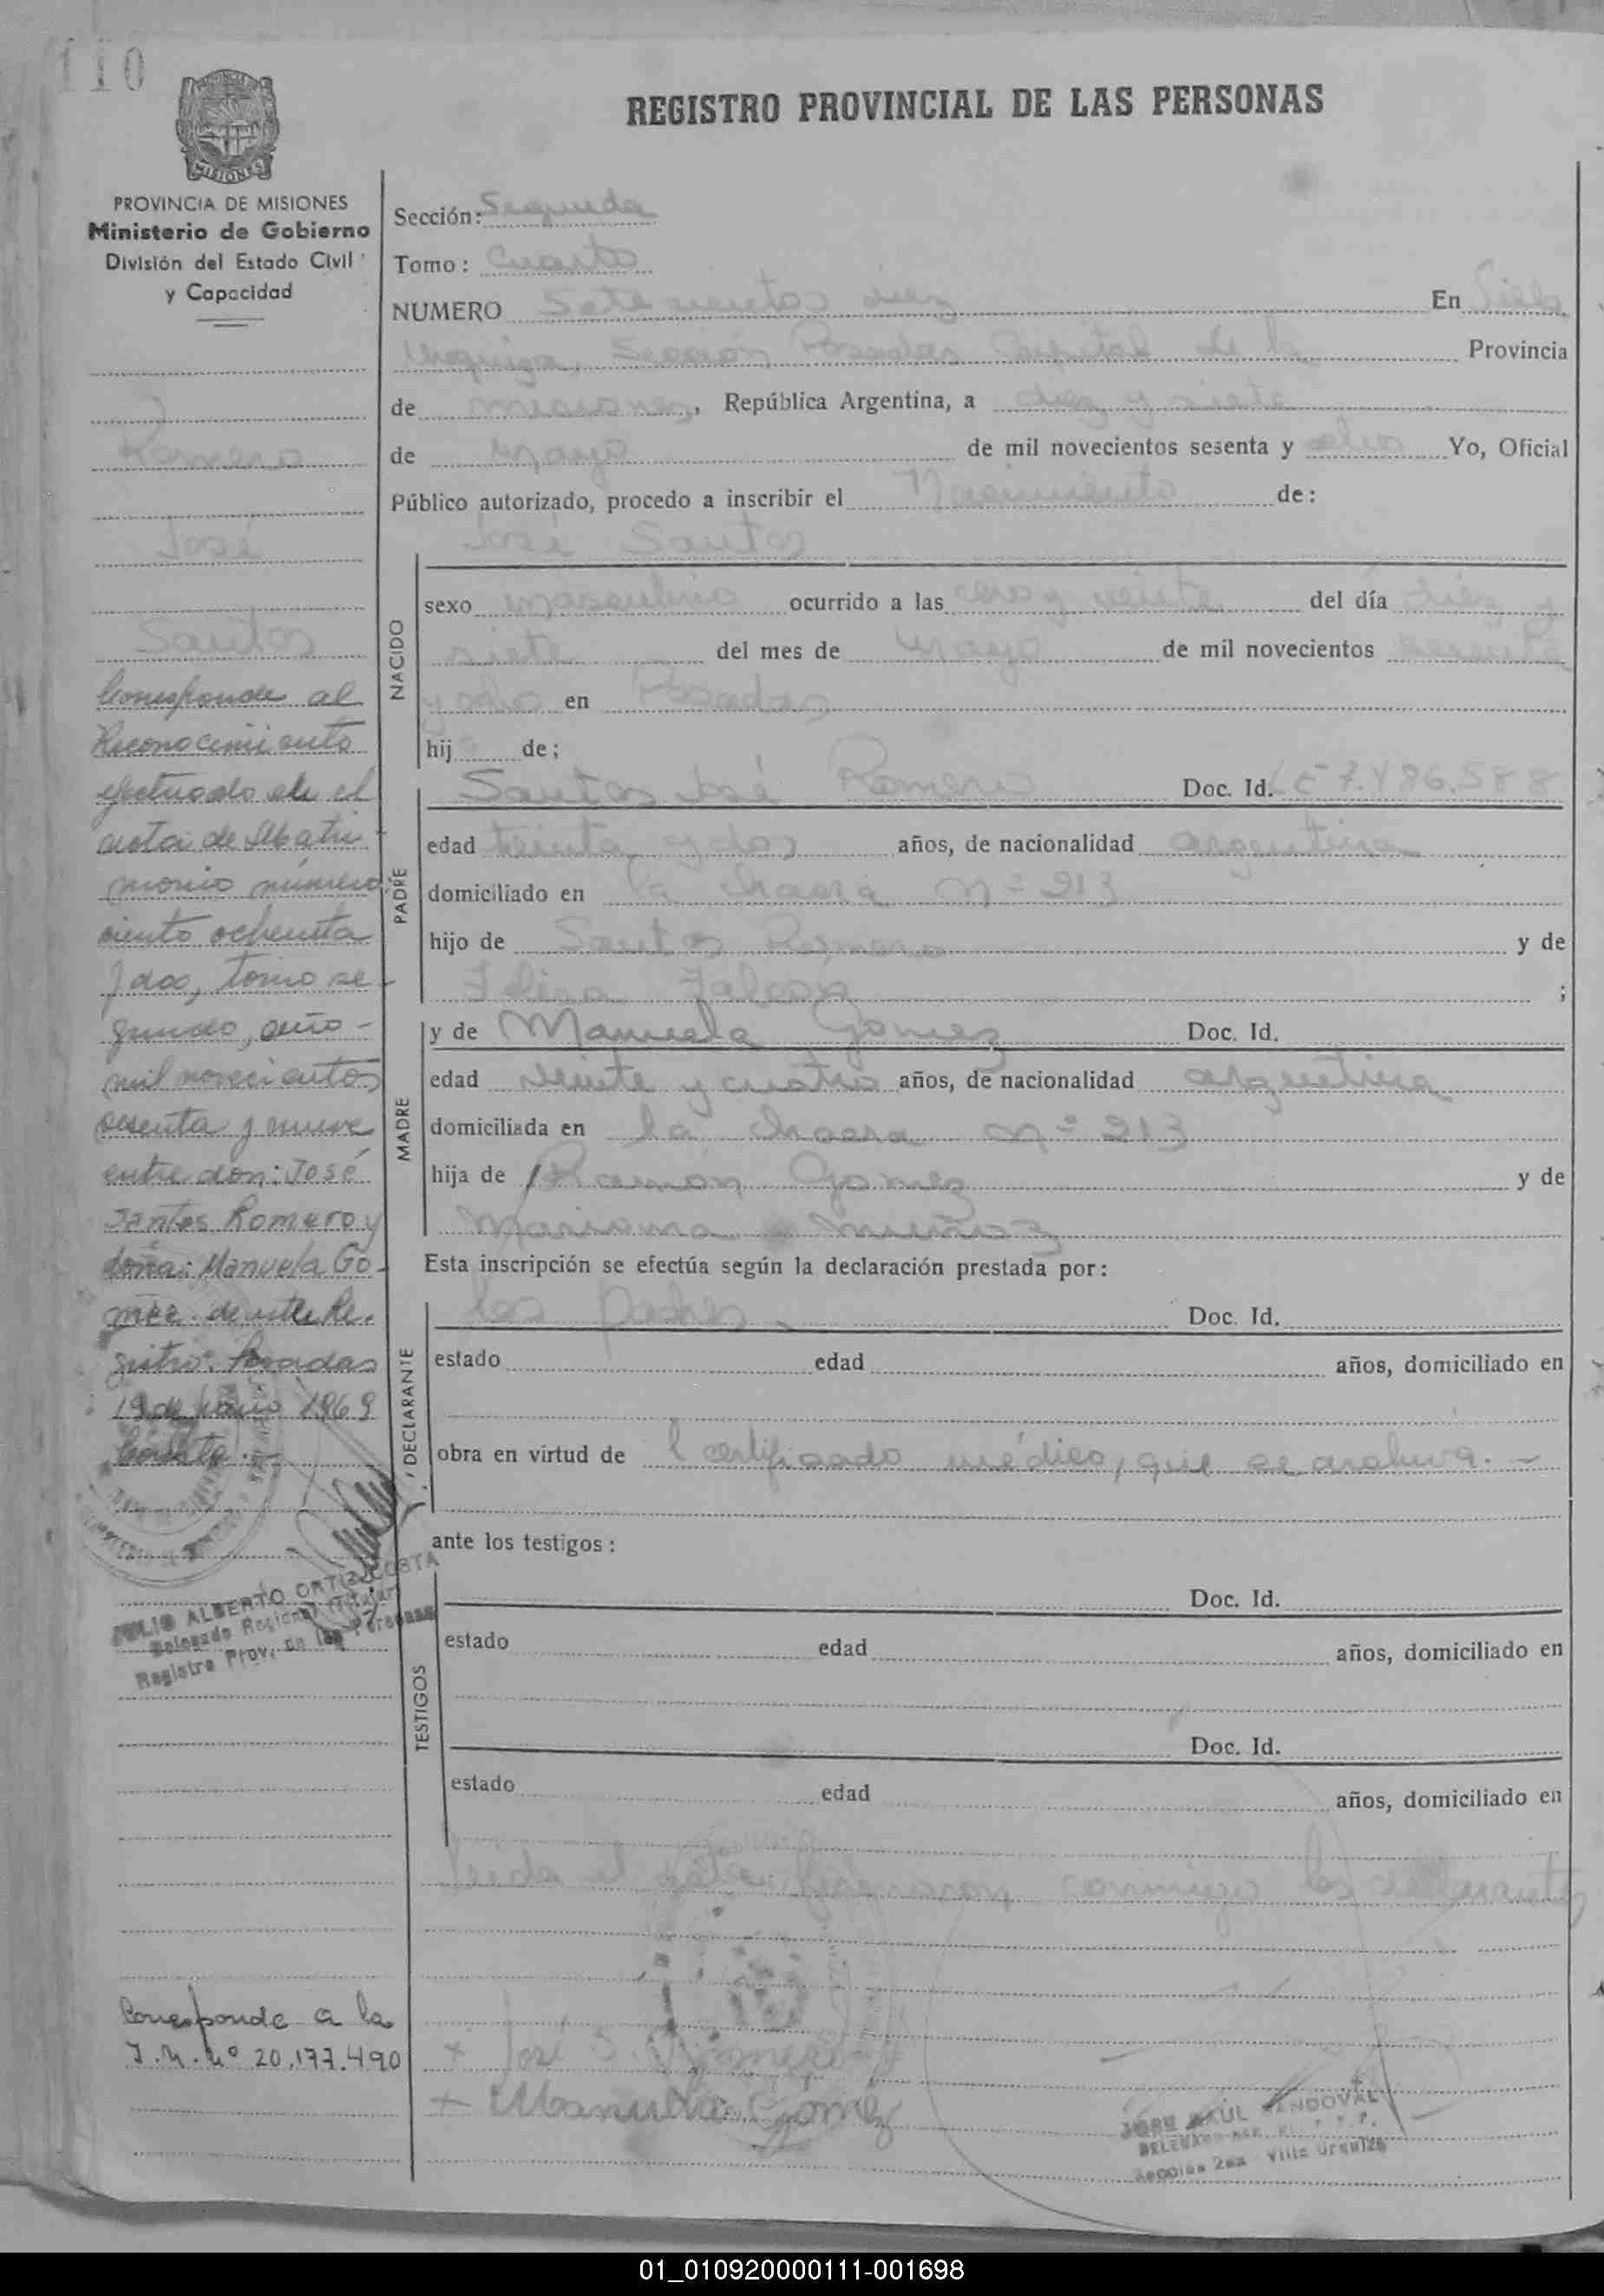 110
REGISTRO PROVINCIAL DE LAS PERSONAS
MISIONES
PROVINCIA DE MISIONES
Ministerio de Gobierno
División del Estado Civil
y Capacidad
Romero
José
Santos
Corresponde al
Reconocimiento
efectuado en el
acta de Matri
monio número
ciento ochenta
y dos, tomo se
gundo, año -
mil novecientos
sesenta y nueve
entre don: José
Santos Romero y
doña: Manuela Go-
mez. de este Re.
gistro. Posadas
19 de 1969
JULIO ALBERTO ORTIZ COSTA
Delegado Regional Titular
Registro Prov. de las Personas
Corresponde a la
I.N. Nº 20.177.490
Sección: Segunda
Tomo: Cuarto
NUMERO Setecientos diez En Villa
Urquiza, Sección Posadas Capital de la Provincia
de Misiones, República Argentina, a diez y siete
de Mayo de mil novecientos sesenta y ocho Yo, Oficial
Público autorizado, procedo a inscribir el Nacimiento de:
José Santos
NACIDO
sexo masculino ocurrido a las cero y veinte del día diez y
siete del mes de Mayo de mil novecientos sesenta
y ocho en Posadas
hij de;
PADRE
Santos José Romero Doc. Id. LE 7.486.588
edad treinta y dos años, de nacionalidad argentina
domiciliado en la chacra nº 213
hijo de Santos Romero y de
Felisa ;
MADRE
y de Manuela Gomez Doc. Id.
edad veinte y cuatro años, de nacionalidad argentina
domiciliada en la chacra nº 213
hija de Ramón Gomez y de
Mariana Muñoz
Esta inscripción se efectúa según la declaración prestada por:
DECLARANTE
los padres. Doc. Id.
estado edad años, domiciliado en
obra en virtud de l certificado médico, que se archiva. -
ante los testigos:
TESTIGOS
Doc. Id.
estado edad años, domiciliado en
Doc. Id.
estado edad años, domiciliado en
Leida el acta, firmaron conmigo los declarantes
+ José S. Romero
+ Manuela Gómez
JORE RAUL SANDOVAL
Sección 2da Villa Urquiza
01_010920000111-001698